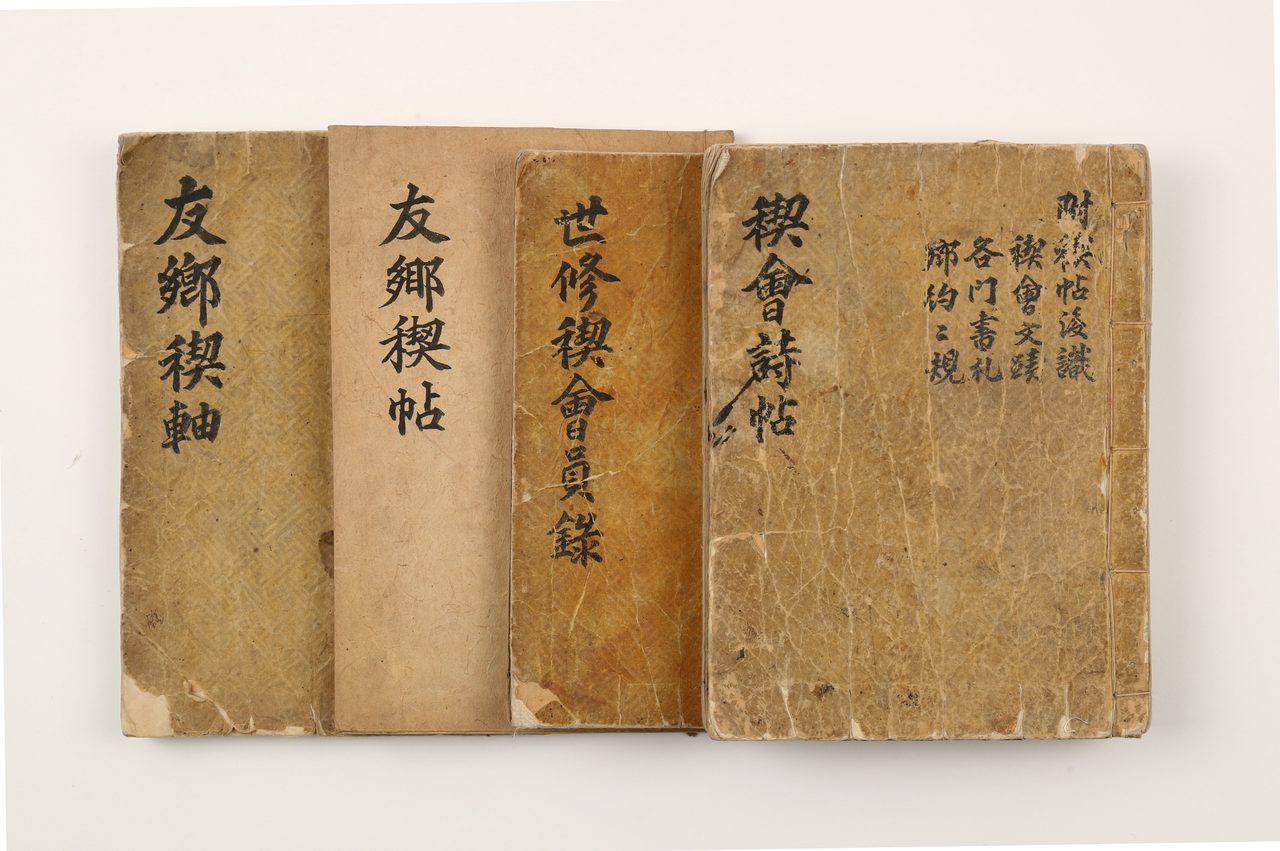 友鄉稧軸
友鄉稧帖
世修稧會員錄
稧會詩帖
附稧帖後識
稧會文蹟
各門書札
鄉約〻規